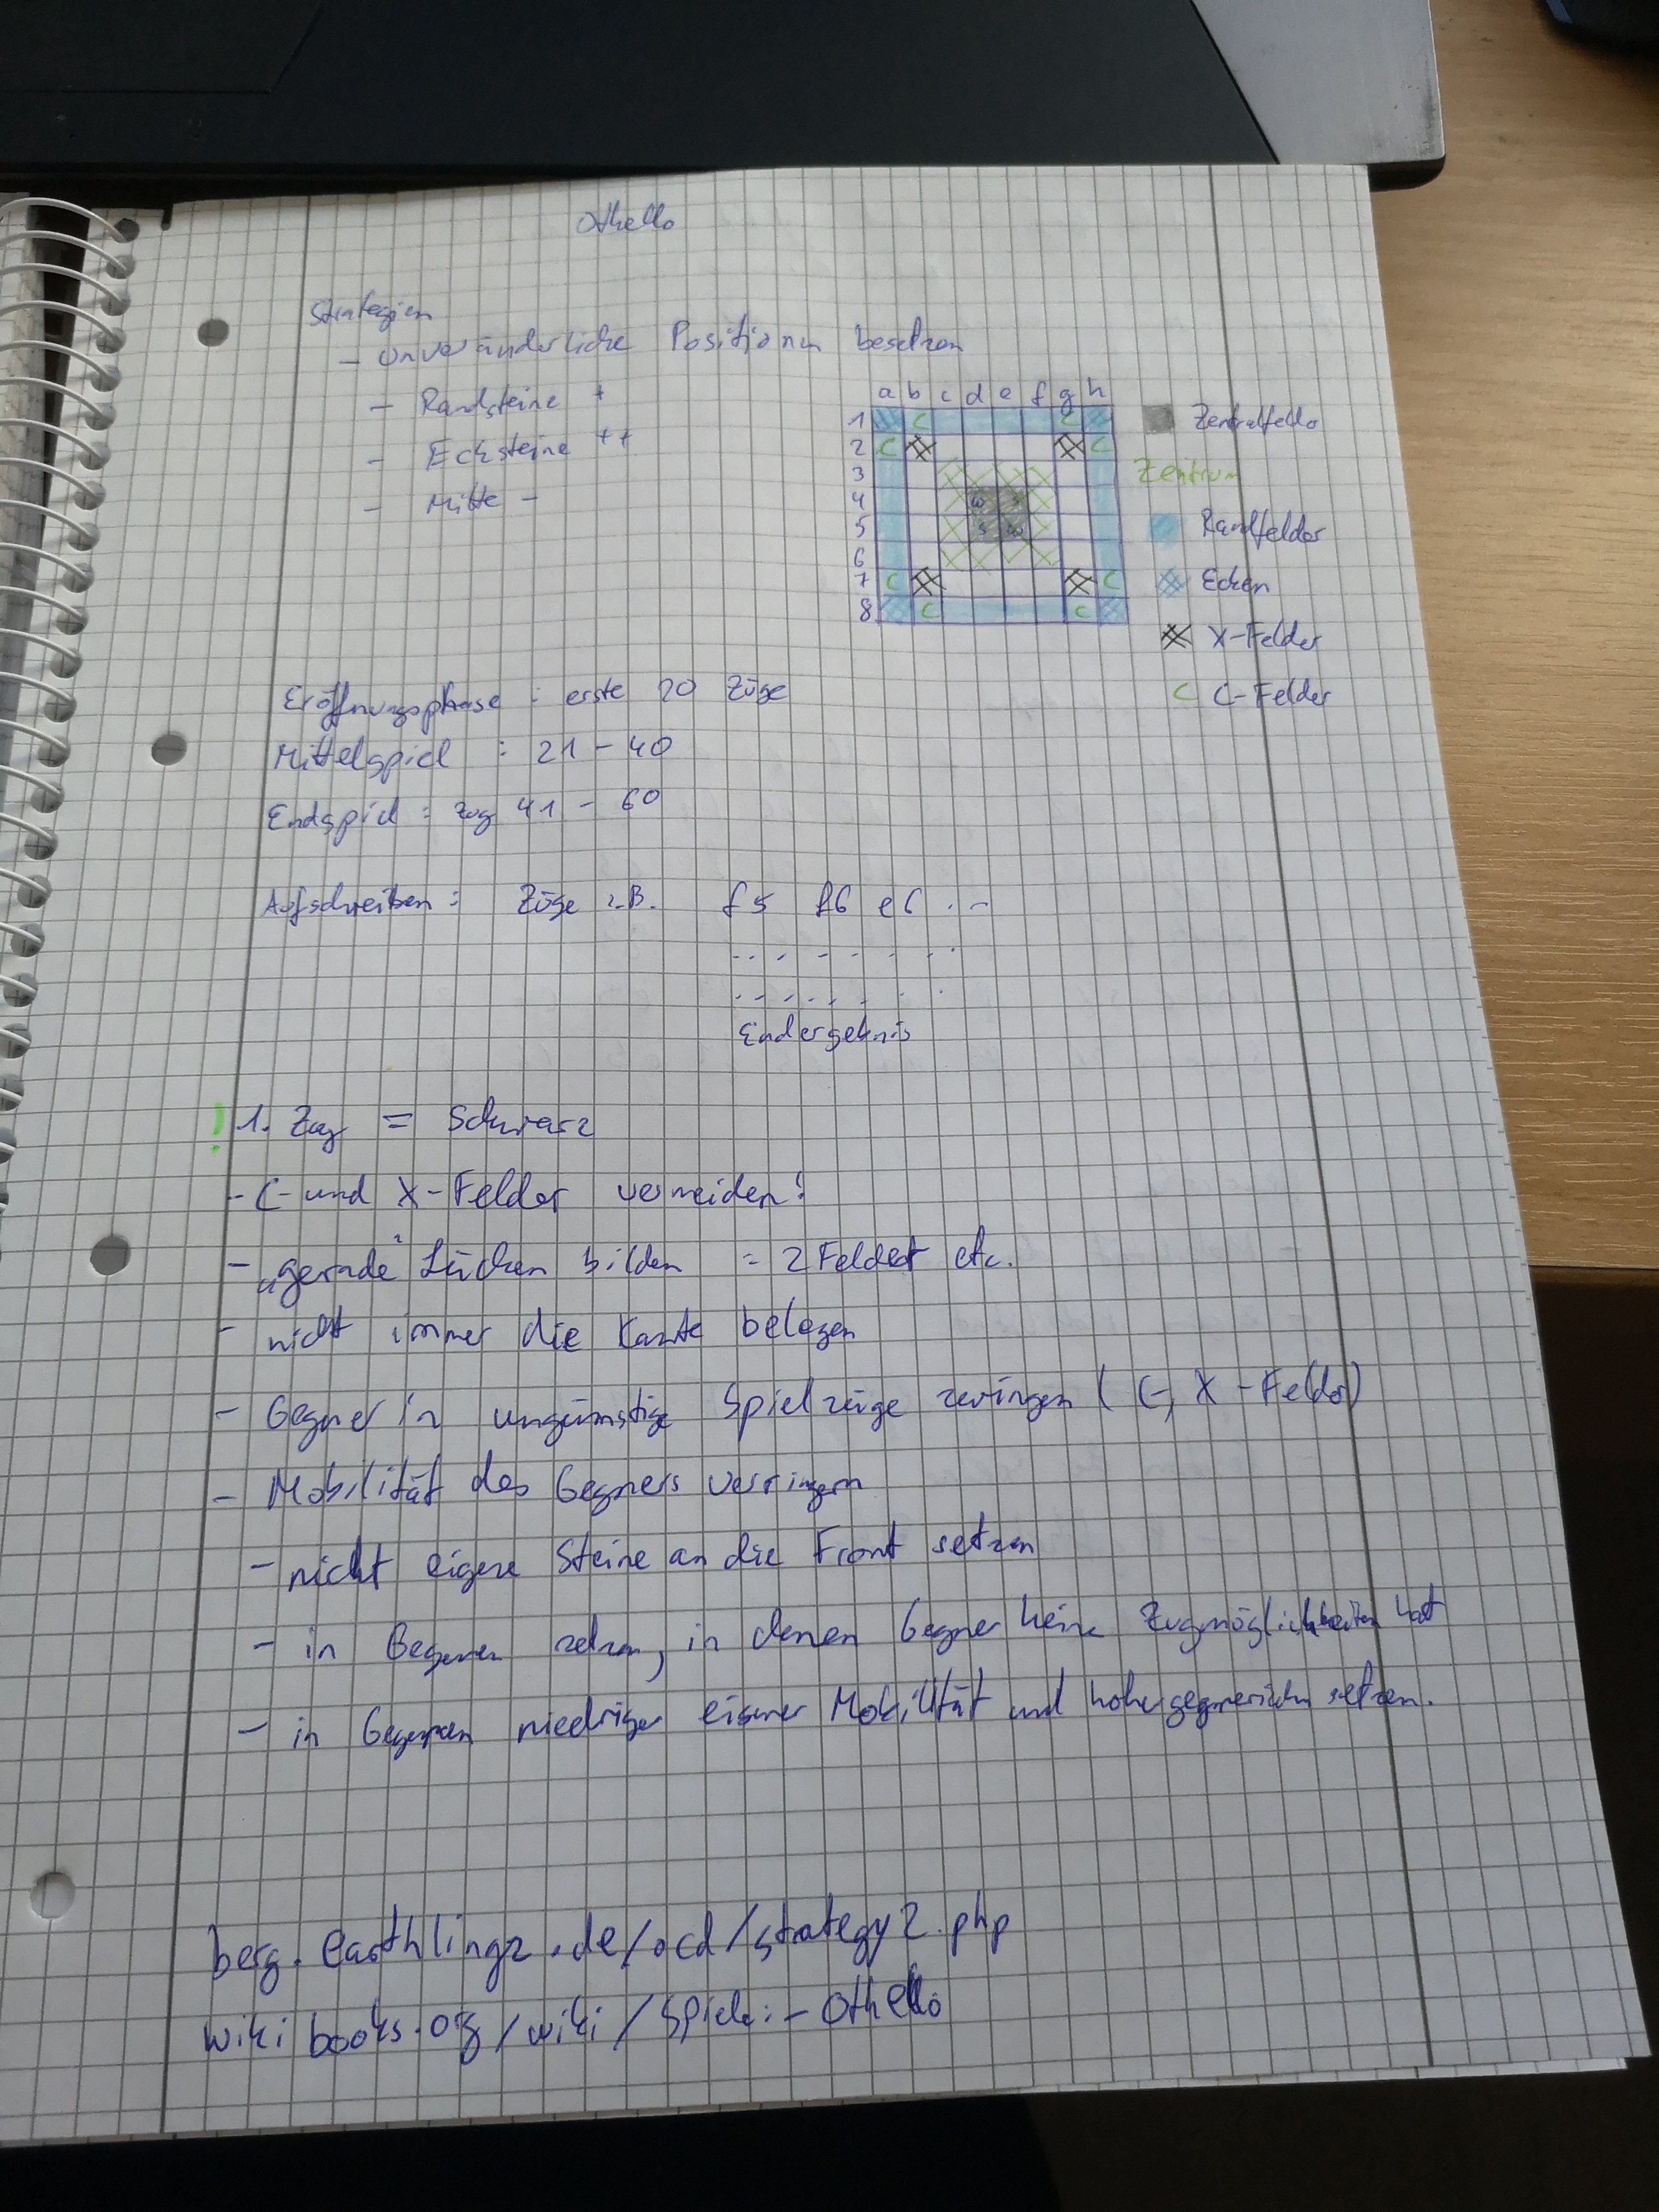 Othello
Strategien
- unveränderliche Positionen besetzen
- Randsteine +
- Ecksteine ++
- Mitte -
a b c d e f g h
1 C C
2 C C
3
4 w
5 s w
6
7 C C
8 C C
Zentralfeld
Zentrum
Randfelder
Ecken
X-Felder
C C-Felder
Eröffnungsphase : erste 20 Züge
Mittelspiel : 21 - 40
Endspiel : Zug 41 - 60
Aufschreiben : Züge z.B. f5 f6 e6 . -
Endergebnis
! 1. Zug = Schwarz
- C- und X-Felder vermeiden!
- „gerade" Lücken bilden = 2 Felder etc.
- nicht immer die Kante belegen
- Gegner in ungünstige Spielzüge zwingen ( C-, X-Felder)
- Mobilität des Gegners verringern
- nicht eigene Steine an die Front setzen
- in Gegenen setzen, in denen Gegner keine Zugmöglichkeiten hat
- in Gegenen niedriger eigener Mobilität und hoher gegnerischen setzen.
berg.earthlingz.de/ocd/strategy2.php
wikibooks.org/wiki/Spiele:-Othello